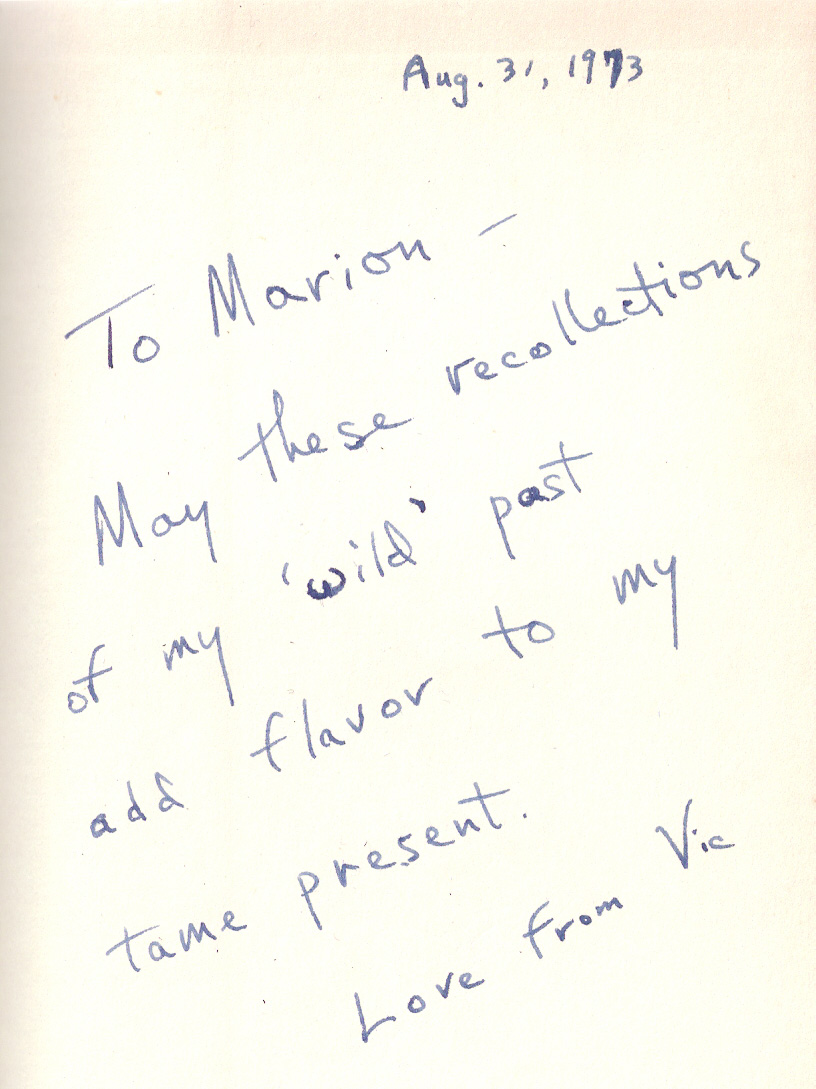 Aug. 31, 1973
To Marion –
May these recollections
of my 'wild' past
add flavor to my
tame present.
Love from Vic